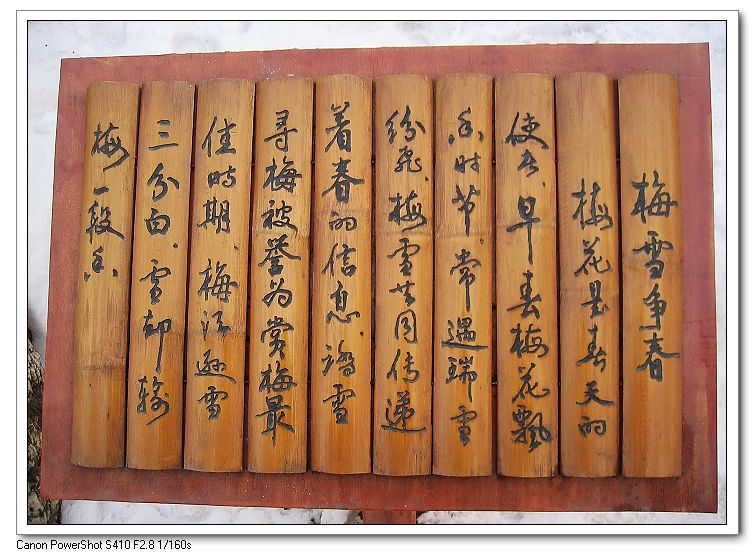 梅雪争春
梅花是春天的
使者,早春梅花飘
香时节,常遇瑞雪
纷飞,梅雪共同传递
着春的信息,踏雪
寻梅被誉为赏梅最
佳时期,梅须逊雪
三分白,雪却输
梅一段香
Canon PowerShot S410 F2.8 1/160s